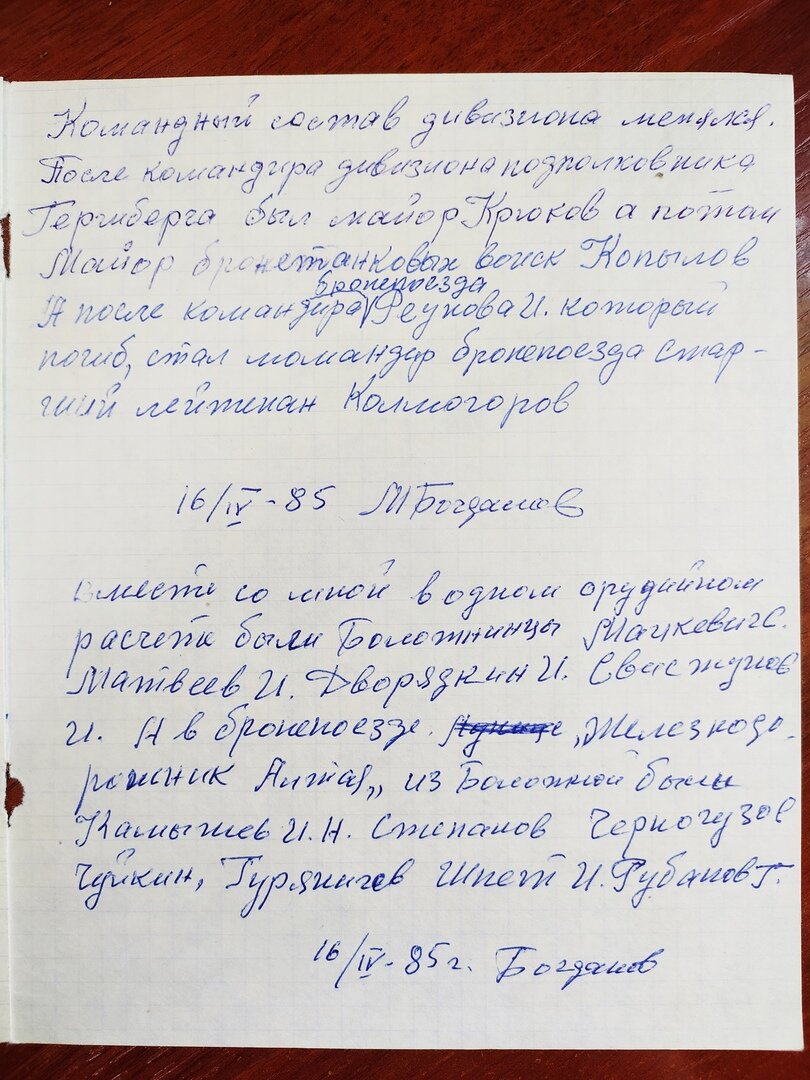 Командный состав дивизиона менялся.
После командира дивизиона подполковника
Гергиберга был майор Крюков а потом
Майор бронетанковых войск Копылов
бронепоезда
А после командира √ Реунова И. который
погиб, стал момандир бронепоезда Стар-
ший лейтенан Колмогоров
16/IV-85 М Богданов
вместе со мной в одном орудийном
расчете были Болотнинцы Мацкевич С.
Матвеев И. Дворязкин И. Свистунов
И. А в бронепоезде „Железнодо-
рожник Алтая„ из Болотной были
Камышев И.Н. Степанов Черногузов
Чуйкин, Гурьяничев Шпет И. Рубанов Г.
16/IV-85г. Богданов